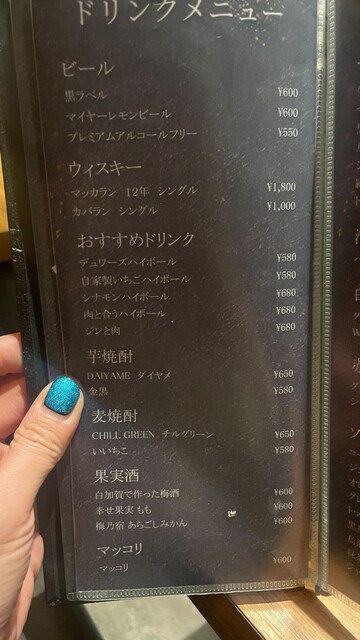 ドリンクメニュー
ビール
黒ラベル ¥600
マイヤーレモンビール ¥600
プレミアムアルコールフリー ¥550
ウィスキー
マッカラン 12年 シングル ¥1,800
カバラン シングル ¥1,000
おすすめドリンク
デュワーズハイボール ¥580
自家製いちごハイボール ¥580
シナモンハイボール ¥680
肉と合うハイボール ¥680
ジンと肉 ¥680
芋焼酎
DAIYAME ダイヤメ ¥650
金黒 ¥580
麦焼酎
CHILL GREEN チルグリーン ¥650
いいちこ ¥580
果実酒
白加賀で作った梅酒 ¥600
幸せ果実 もも ¥600
梅乃宿 あらごしみかん ¥600
マッコリ
マッコリ ¥600